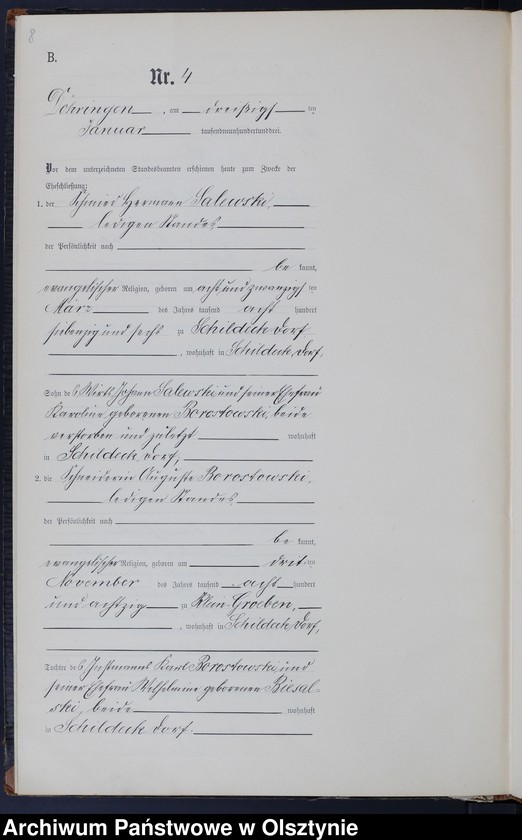 8
B.
Nr. 4
Döhringen, am dreißigsten
Januar tausendneunhundertunddrei.
Vor dem unterzeichneten Standesbeamten erschienen heute zum Zwecke der
Eheschließung:
1. der Schmied Hermann Salewski,
ledigen Standes
der Persönlichkeit nach
be kannt,
evangelischer Religion, geboren am acht und zwanzigsten
März des Jahres tausend acht hundert
siebenzig und sechs zu Schildeck Dorf
, wohnhaft in Schildeck, Dorf,
Sohn des Wirts Johann Salewski und seiner Ehefrau
Karoline geborenen Borostowski, beide
verstorben und zuletzt wohnhaft
in Schildeck Dorf,
2. die Schneiderin Auguste Borostowski,
ledigen Standes
der Persönlichkeit nach
be kannt,
evangelischer Religion, geboren am dritten
November des Jahres tausend acht hundert
und achtzig zu Klein Groeben,
, wohnhaft in Schildeck, Dorf,
Tochter des Instmanns Karl Borostowski und
seiner Ehefrau Wilhelmine geborenen Biesal-
ski, beide wohnhaft
in Schildeck Dorf.
Archiwum Państwowe w Olsztynie